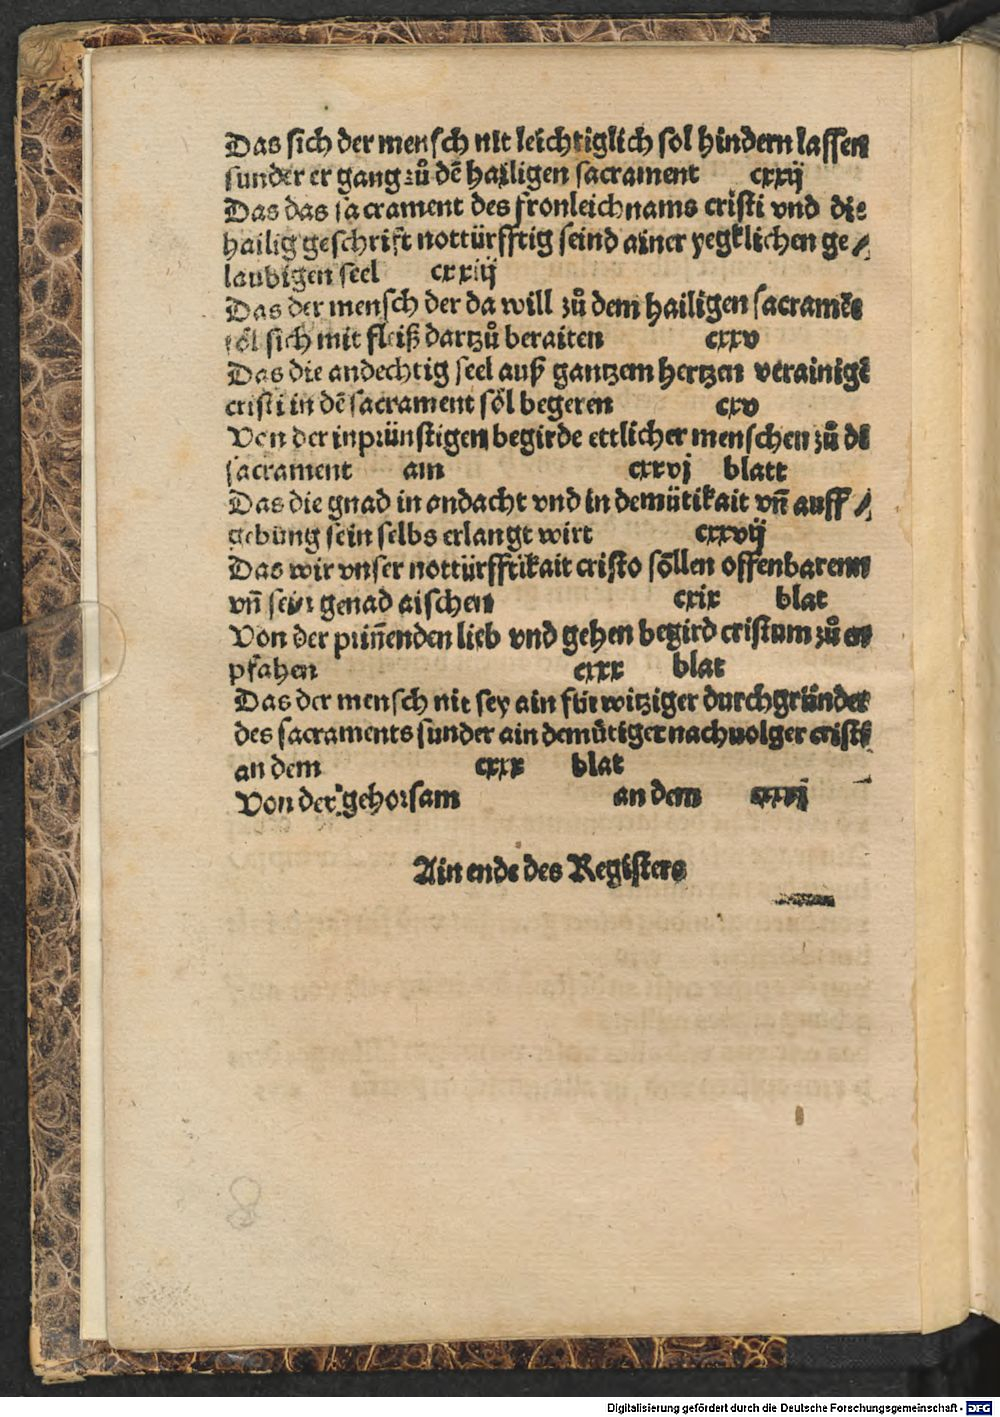 Das sich der mensch nit leichtiglich sol hindern lassen
sunder er gang zů dē hailigen sacrament cxxij
Das das sacrament des fronleichnams cristi vnd die
hailig geschrift nottürfftig seind ainer yegklichen ge⸗
laubigen seel cxxiij
Das der mensch der da will zů dem hailigen sacramēt
söl sich mit fleiß dartzů beraiten cxxv
Das die andechtig seel auß gantzem hertzen verainigt
cristi in dē sacrament söl begeren cxv
Von der inprünstigen begirde ettlicher menschen zů dē
sacrament am cxxvj blatt
Das die gnad in andacht vnd in demütikait vñ auff⸗
gebung sein selbs erlangt wirt cxxvij
Das wir vnser nottürfftikait cristo söllen offenbarenn
vñ sein genad aischen cxix blat
Von der priñenden lieb vnd gehen begird cristum zů en
pfahen cxxx blat
Das der mensch nit sey ain fürwitziger durchgründer
des sacraments sunder ain demütiger nachuolger cristi
an dem cxxx blat
Von der gehorsam an dem cxxxj
Ain ende des Registers
Digitalisierung gefördert durch die Deutsche Forschungsgemeinschaft - DFG